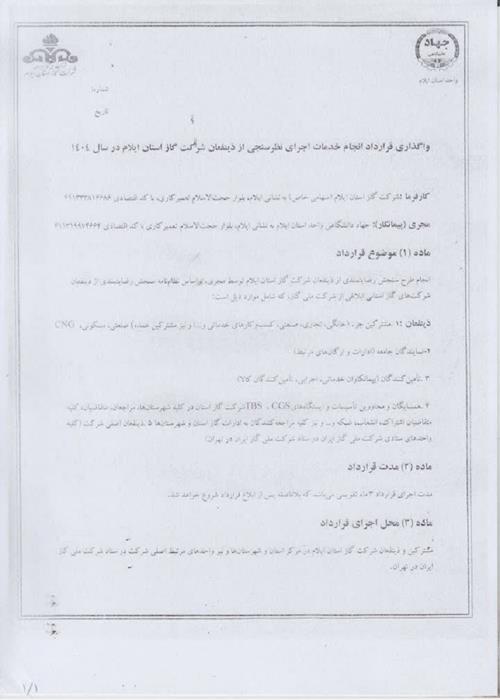 جهاد
دانشگاهی
واحد استان ایلام
شرکت گاز استان ایلام
شماره:
تاریخ
واگذاری قرارداد انجام خدمات اجرای نظرسنجی از ذینفعان شرکت گاز استان ایلام در سال ۱۴۰۴
کارفرما: شرکت گاز استان ایلام (سهامی خاص) به نشانی ایلام، بلوار حجت‌الاسلام تعمیرکاری، با کد اقتصادی
مجری (پیمانکار): جهاد دانشگاهی واحد استان ایلام به نشانی ایلام، بلوار حجت‌الاسلام تعمیرکاری با کد اقتصادی
ماده (۱) موضوع قرارداد
انجام طرح سنجش رضایتمندی از ذینفعان شرکت گاز استان ایلام توسط مجری، براساس نظام‌نامه سنجش رضایتمندی از ذینفعان
شرکت‌های گاز استانی ابلاغی از شرکت ملی گاز، که شامل موارد ذیل است:
ذینفعان :۱ مشترکین جزء (خانگی، تجاری، صنعتی، کسب‌وکارهای خدماتی و...) و نیز مشترکین عمده) صنعتی، مسکونی، CNG
۲-نمایندگان جامعه (ادارات و ارگان‌های مرتبط)
۳ .تأمین‌کنندگان (پیمانکاران خدماتی، اجرایی، تأمین‌کنندگان کالا)
۴ .همسایگان و مجاورین تأسیسات و ایستگاه‌های TBS ، CGS شرکت گاز استان در کلیه شهرستان‌ها، مراجعان، متقاضیان، کلیه
متقاضیان اشتراک، انشعاب، شبکه و... و نیز کلیه مراجعه‌کنندگان به ادارات گاز استان و شهرستان‌ها ۵ .ذینفعان اصلی شرکت (کلیه
واحدهای ستادی شرکت ملی گاز ایران در ستاد شرکت ملی گاز ایران در تهران)
ماده (۲) مدت قرارداد
مدت اجرای قرارداد ۳ ماه تقویمی می‌باشد، که بلافاصله پس از ابلاغ قرارداد شروع خواهد شد.
ماده (۳) محل اجرای قرارداد
مشترکین و ذینفعان شرکت گاز استان ایلام در مرکز استان و شهرستان‌ها و نیز واحدهای مرتبط اصلی شرکت در ستاد شرکت ملی گاز
ایران در تهران.
۱/۱